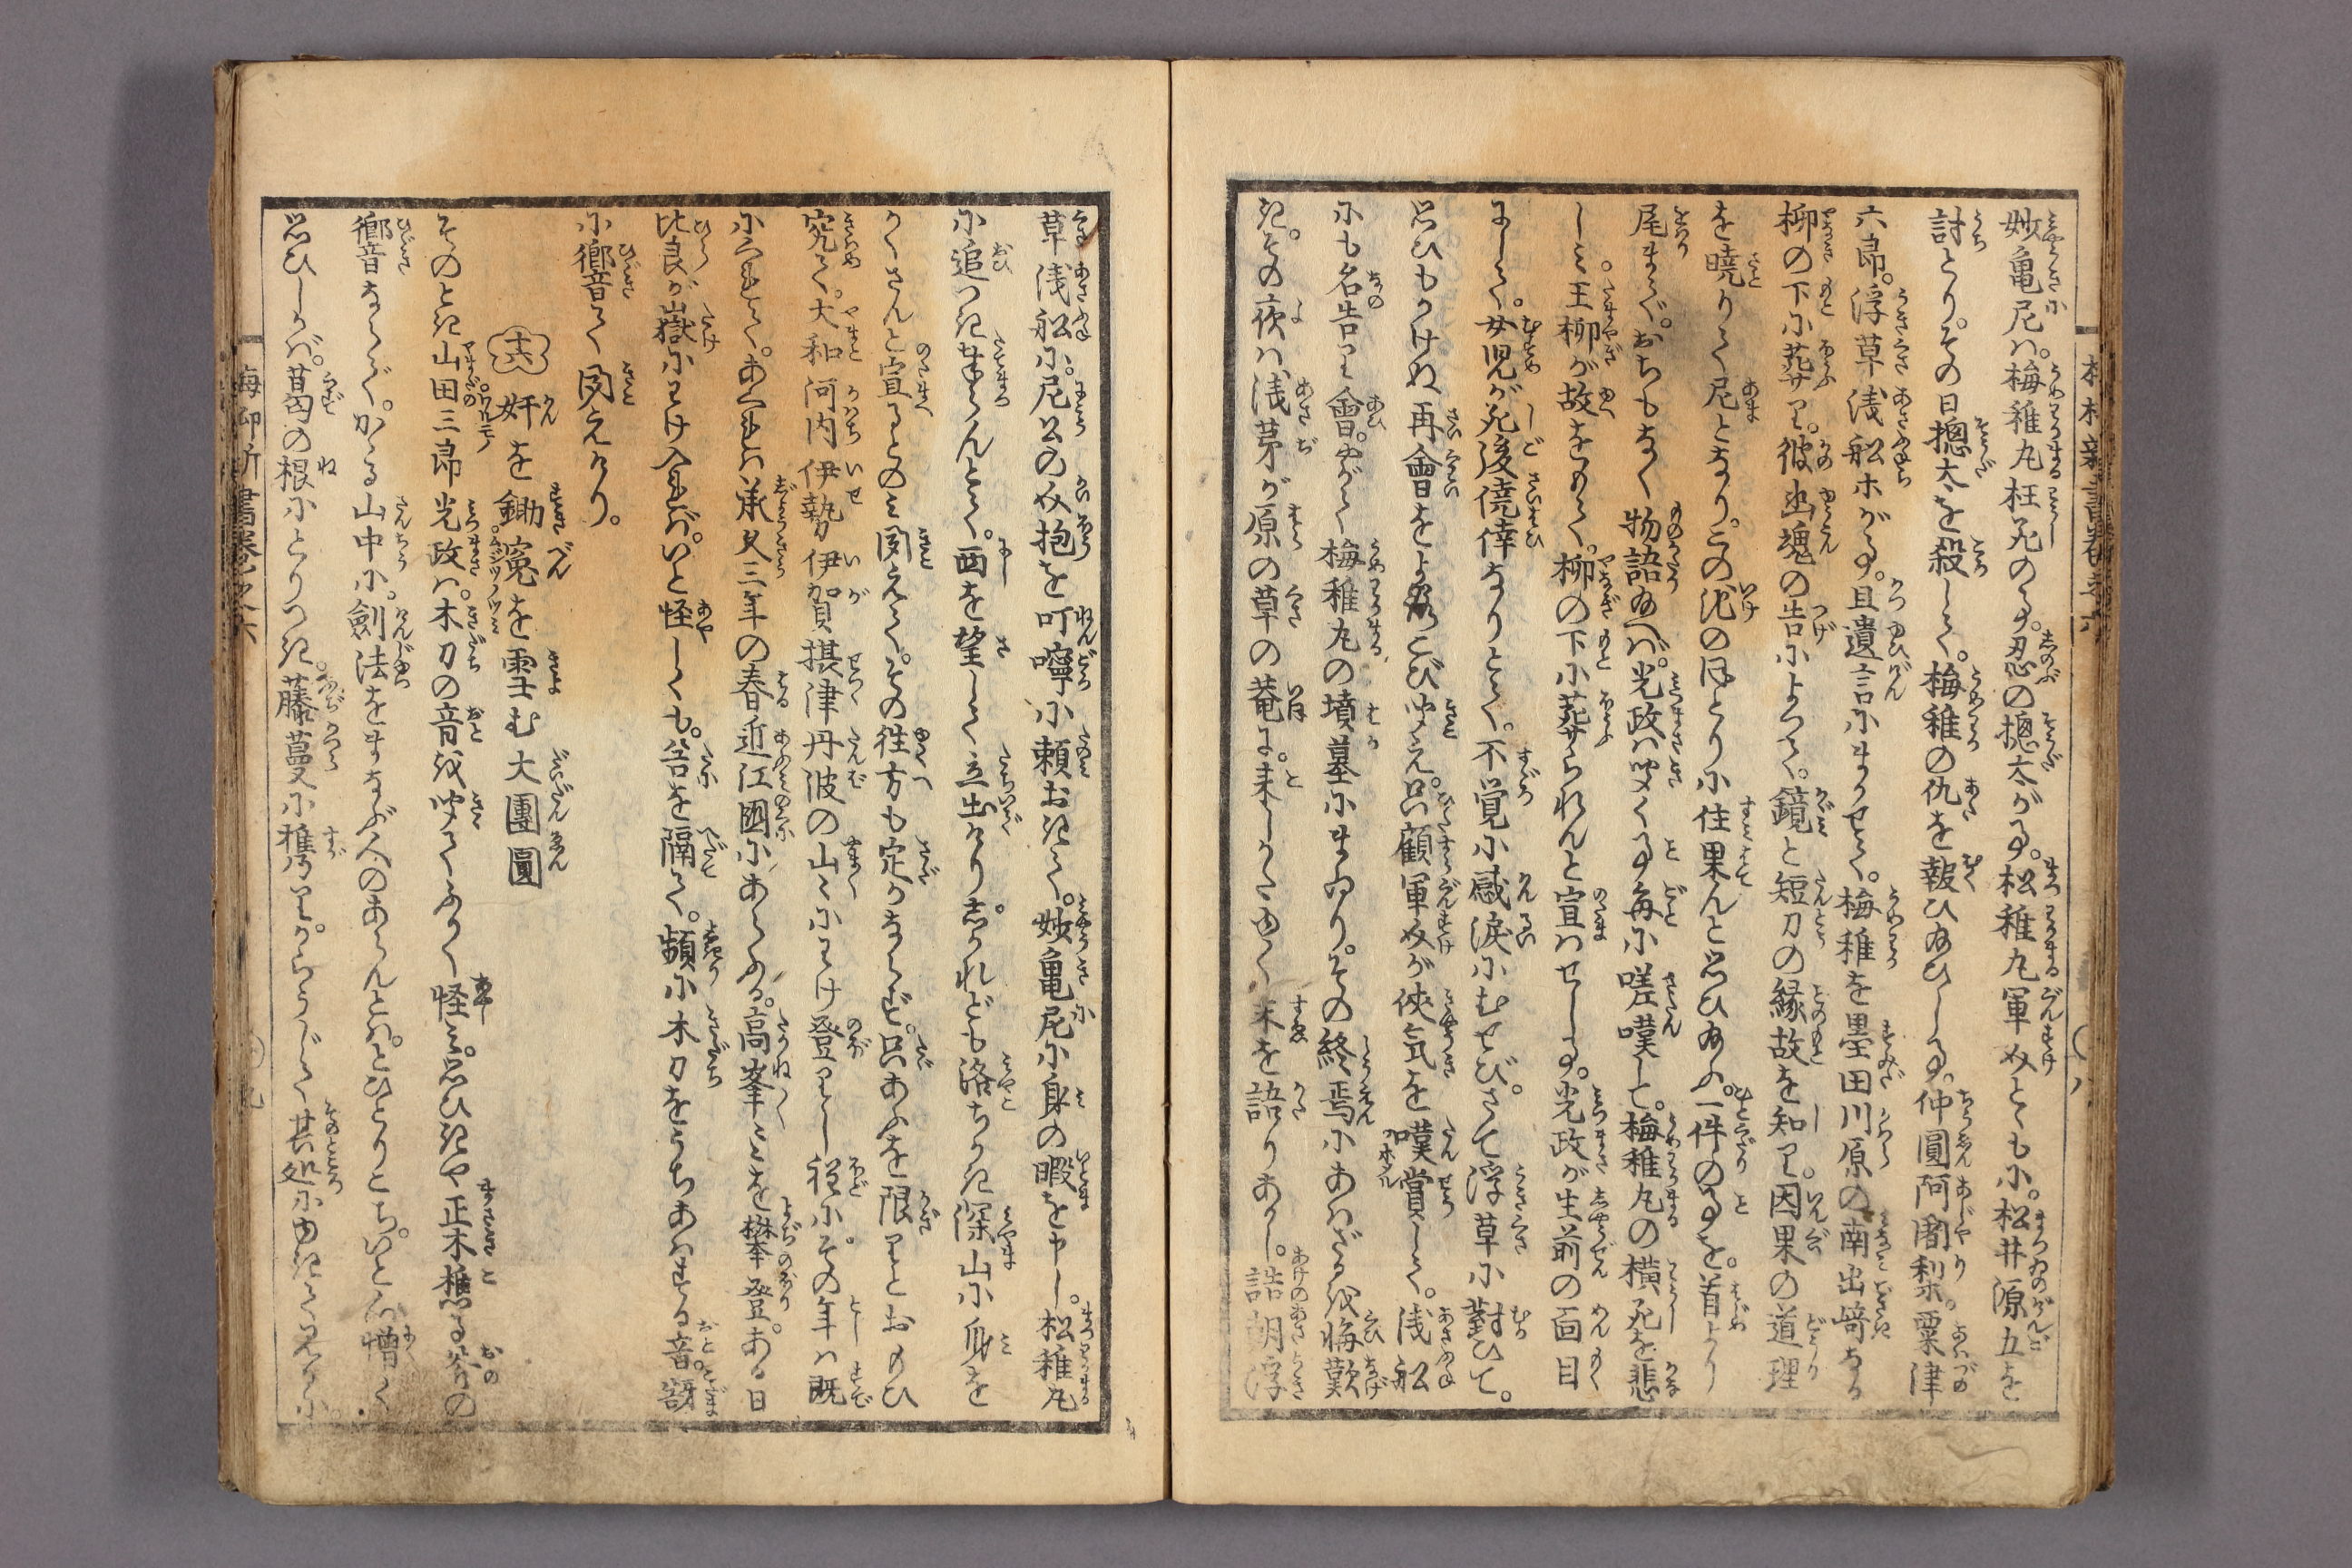 妙亀尼は。梅稚丸枉死の事。忍の摠太が事。松稚丸軍介とゝもに。松井源五を
討とり。その日摠太を殺して。梅稚の仇を報ひ給ひし事。仲圓阿闍梨。粟津
六郎。浮草浅舩ホが事。且遺言にまかせて。梅稚を墨田川原の南出崎なる
柳の下に葬り。彼幽魂の告によつて。鏡と短刀の縁故を知り。因果の道理
を暁りて尼となり。この池のほとりに住果んと思ひ給ふ。一件の事を。首より
尾まで。おちもなく物語給へば。光政は聞く事毎に嗟嘆して。梅稚丸の横死を悲
しみ。玉柳が故をもて。柳の下に葬られんと宣はせし事。光政が生前の面目
にして。女児が死後僥倖なりとて。不覚に感涙にむせび。さて浮草に對ひて。
思ひもかけぬ再會をよろこび聞え。只顧軍介が侠気を嘆賞して。浅舩
にも名告り會。やがて梅稚丸の墳墓にまゐり。その終焉にあはざるを悔歎
き。その夜は浅茅が原の草の菴に。来しかたゆく末を語りあかし。詰朝浮
草浅舩に。尼公の介抱を叮嚀に頼おきて。妙亀尼に身の暇を申し。松稚丸
に追つき奉らんとて。西を望して立出けり。しかれども洛ちかき深山に身を
かくさんと宣りとのみ聞えて。その徃方も定かならず。只あふを限りとおもひ
究て。大和河内伊勢伊賀摂津丹波の山々にわけ登りし程に。その年は既
にくれて。あくれは承久三年の春近江國にあらふる。高峯々々を攀登。ある日
比良が嶽にわけ入れば。いと怪しくも。谷を隔て。頻に木刀をうちあはする音。谺
に響て聞えけり。
十六 奸を鋤冤を雪む大團圓
そのとき山田三郎光政は。木刀の音を聞てふかく怪み。思ひきや正木樵る斧の
響音ならで。かゝる山中に。劍法をまなぶ人のあらんとは。とひとりごち。いと心憎く
思ひしかば。葛の根にとりつき。藤蔓に携りからうじて其処にゆきて見るに。